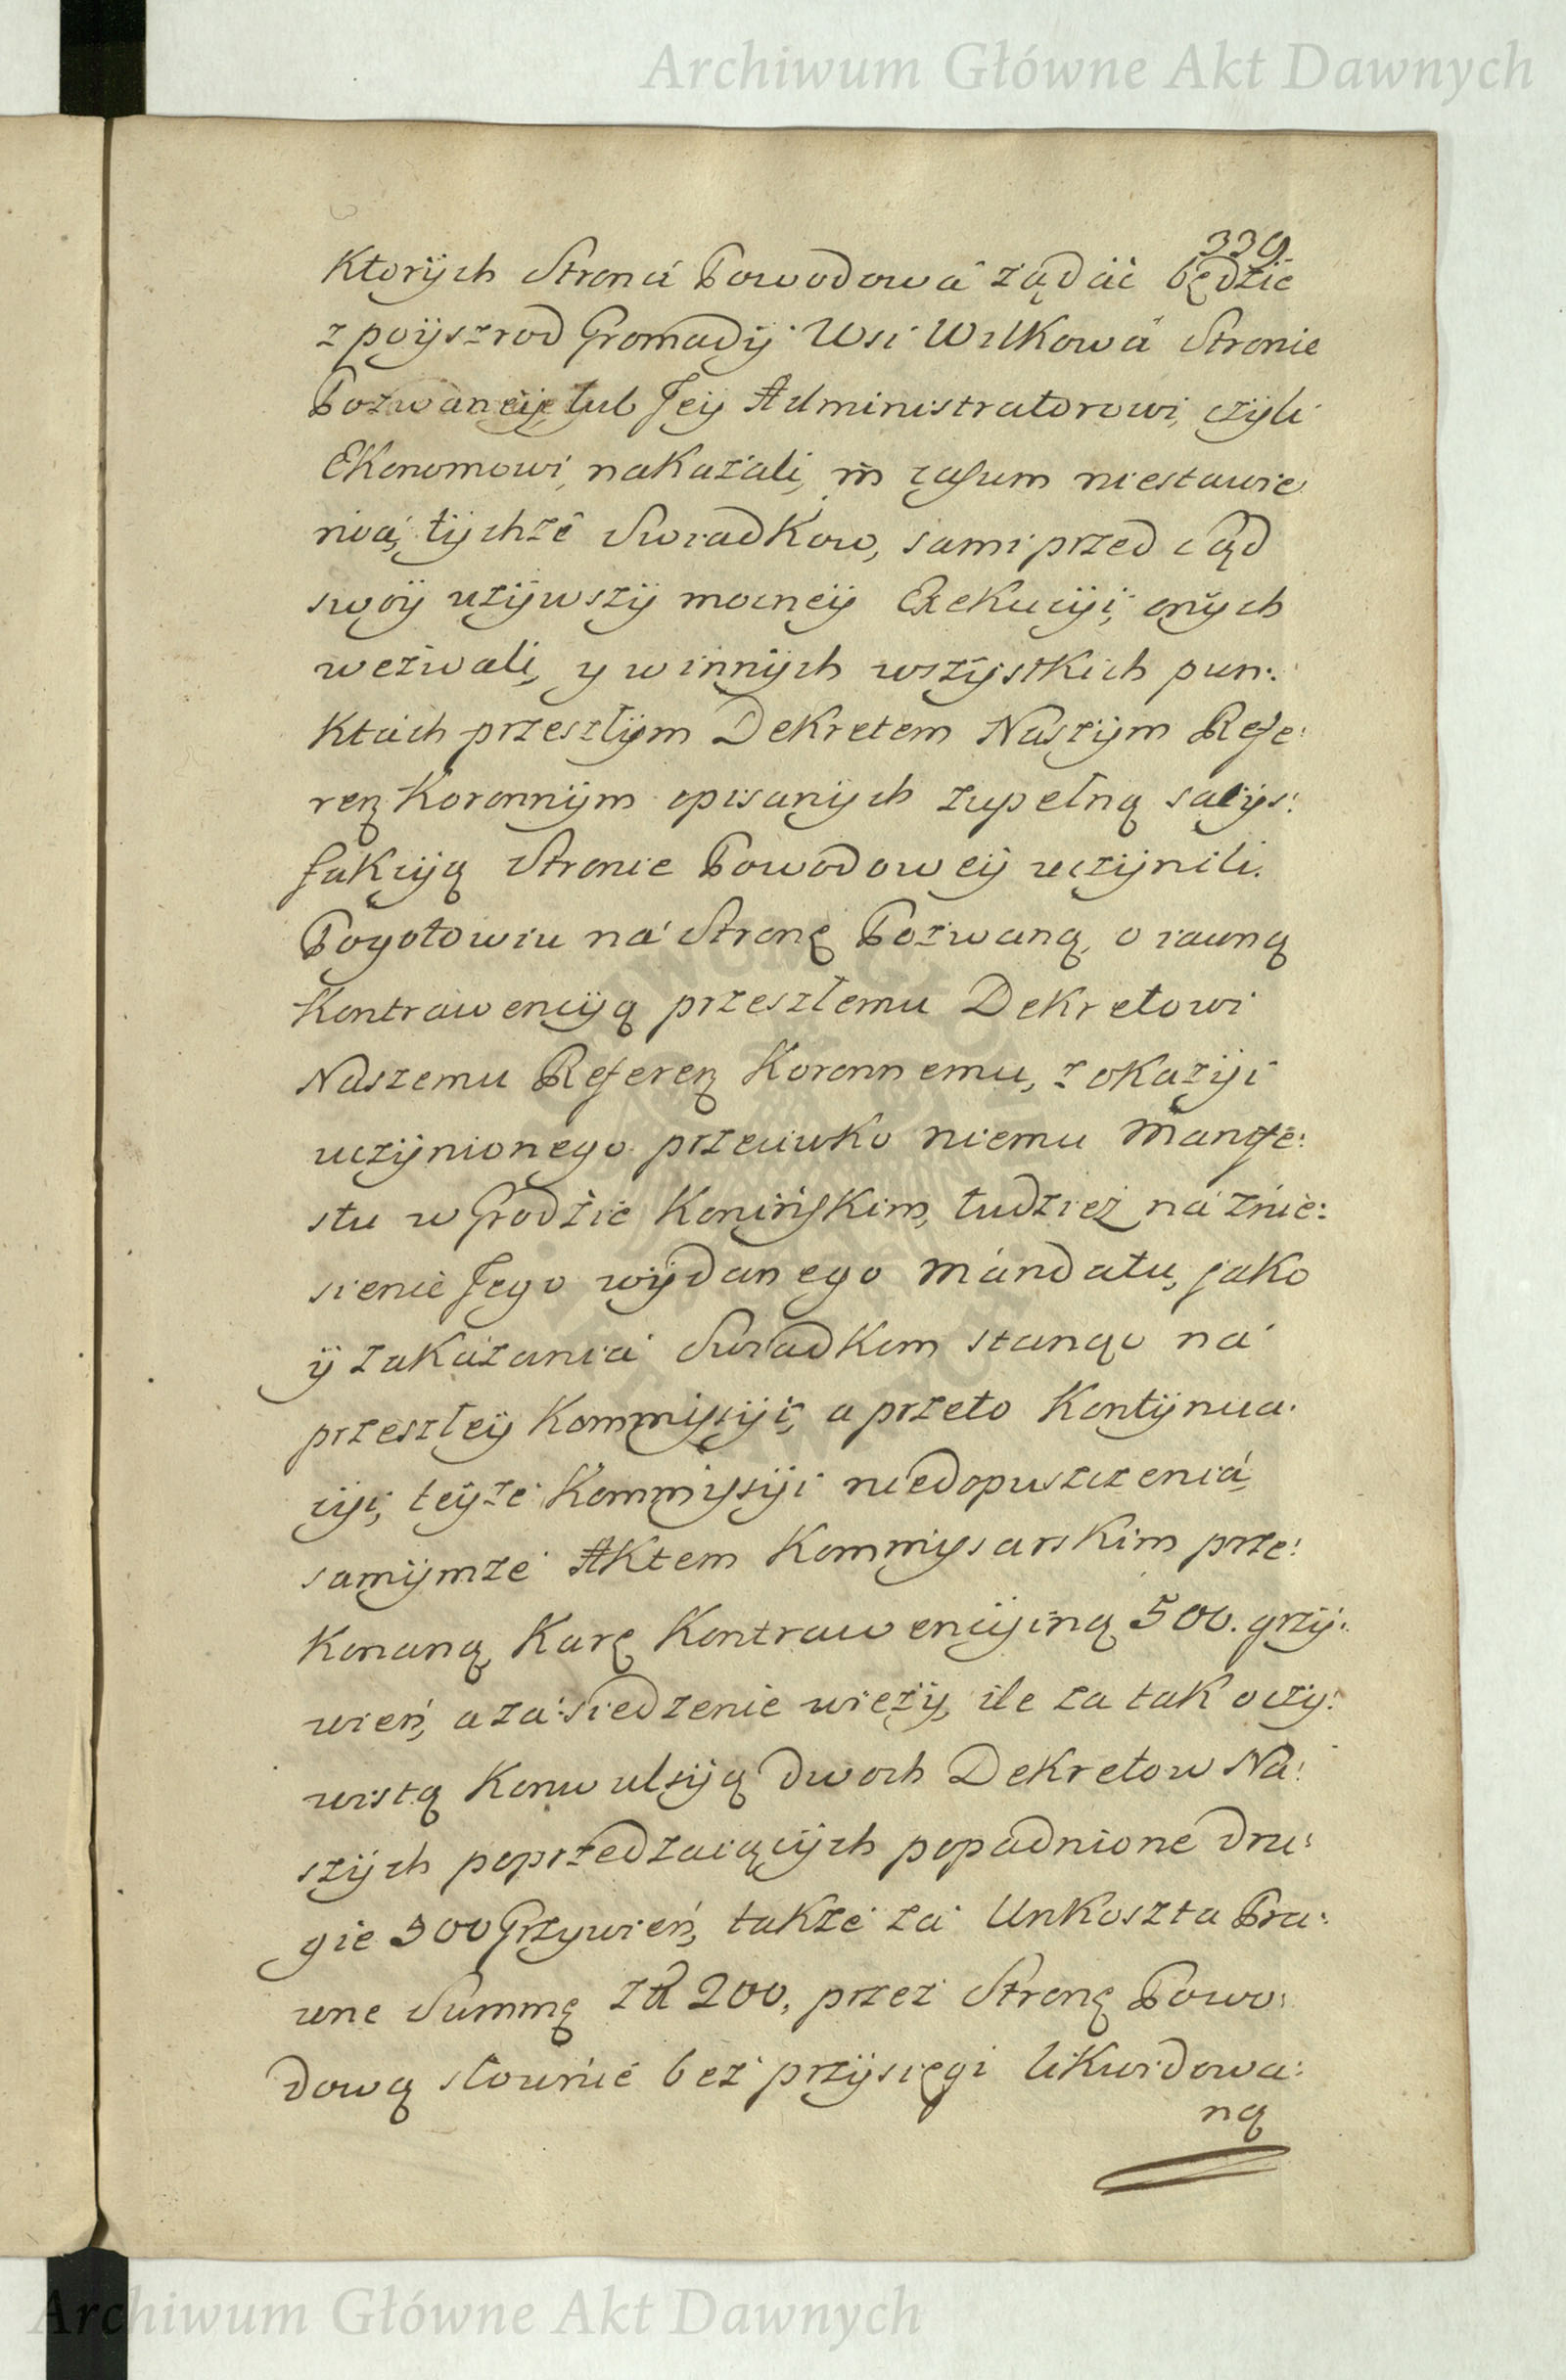 Archiwum Główne Akt Dawnych
339
Ktorÿch Strona Powodowa żądać będzie
z poÿszrod Gromadÿ Wsi Wilkowa Stronie
Pozwaneÿ, lub Jeÿ Administratorowi, czÿli
Ekonomowi, nakazali, in casum niestawie
nia, tÿchże Swiadkow, sami przed sąd
swoÿ użÿwszÿ mocneÿ Exekucÿi, onÿch
wezwali, y w innÿch wszÿstkich pun:
ktach przeszłÿm Dekretem Naszÿm Refe:
ren Koronnÿm opisanÿch zupełną satÿs:
fakcÿą Stronie Powodoweÿ uczÿnili.
Pogotowiu na Stronę Pozwaną, o iawną
Kontrawencÿą przeszłemu Dekretowi
Naszemu Referen Koronnemu, z okazÿi
uczÿnionego przeciwko niemu Manife:
stu w Grodzie Konińskim, tudzież na znie:
sienie Jego wÿdanego Mandatu, jako
ÿ zakazania Swiadkom stanąc na
przeszłeÿ Kommissÿi, a przeto Kontÿnua:
cÿi, teÿże Kommissÿi niedopuszczenia,
samÿmże Aktem Kommissarskim prze:
konaną, Karę Kontrawencÿiną 500. grzÿ:
wien, a za siedzenie wieżÿ, ile za tak oczÿ:
wistą Konwulsÿą dwoch Dekretow Na:
szÿch poprzedzaiącÿch popadnione dru:
gie 500 Grzywien, takze za Unkoszta Pra:
wne Summę Zł 200, przez Stronę Powo:
dową słownie bez przÿsięgi likwidowa:
ną
Archiwum Główne Akt Dawnych